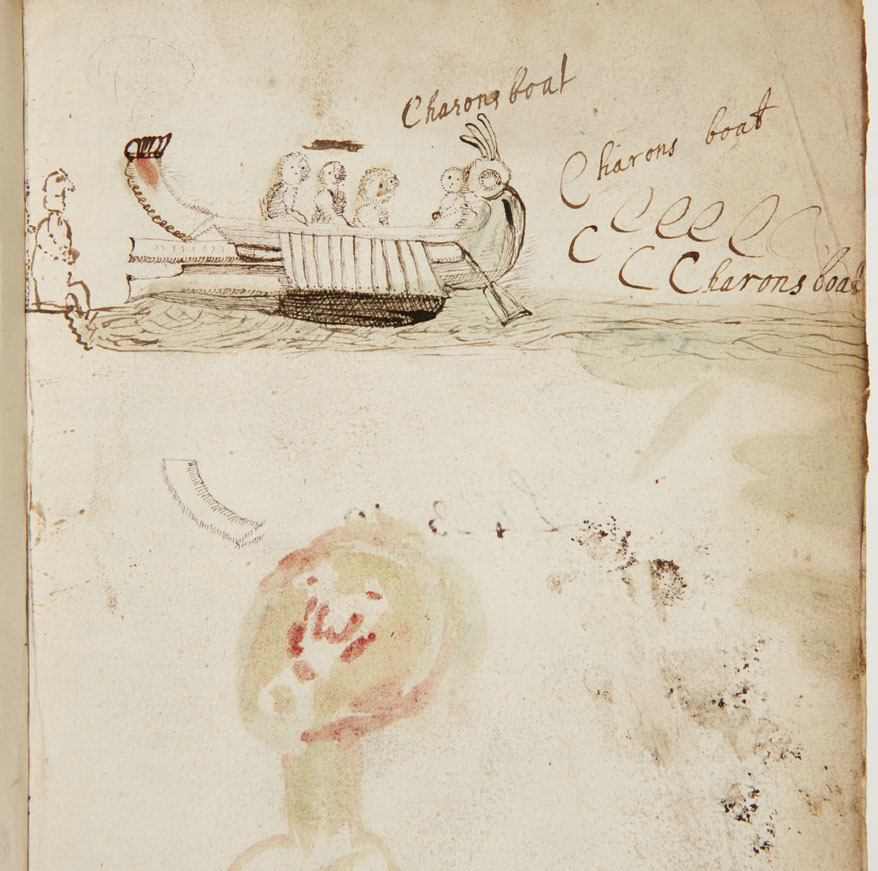 Charons boat
Charons boat
C e e e e
C
C Charons boat